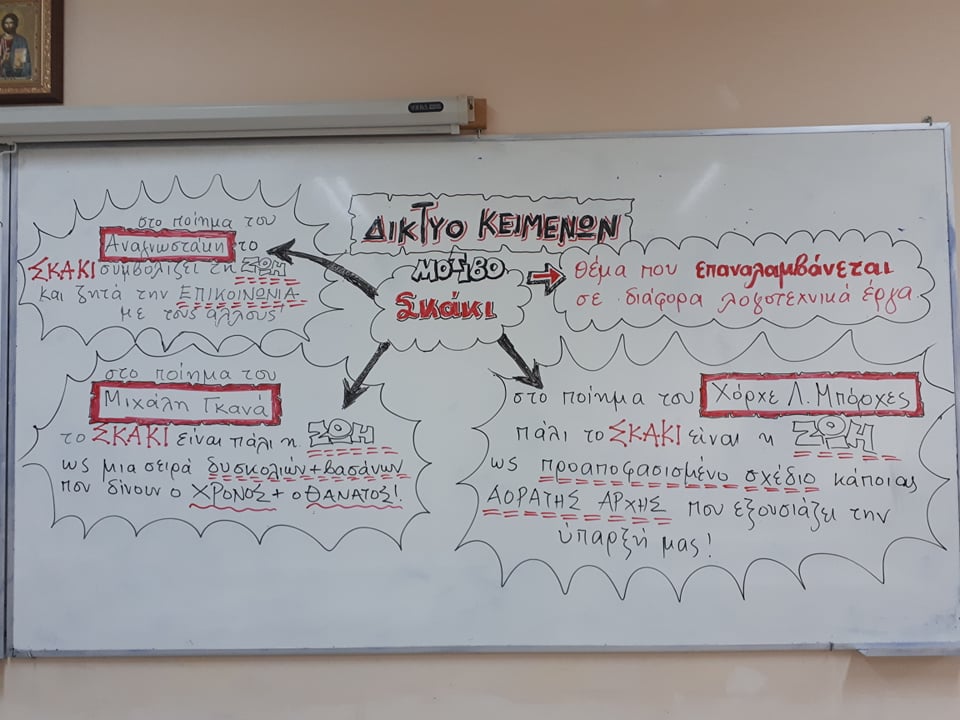 ΔΙΚΤΥΟ ΚΕΙΜΕΝΩΝ
ΜΟΤΙΒΟ
Σκάκι
θέμα που επαναλαμβάνεται
σε διάφορα λογοτεχνικά έργα
στο ποίημα του
Αναγνωστάκη το
ΣΚΑΚΙ συμβολίζει τη ΖΩΗ
και ζητά την ΕΠΙΚΟΙΝΩΝΙΑ
με τους άλλους!
στο ποίημα του
Μιχάλη Γκανά
το ΣΚΑΚΙ είναι πάλι η ΖΩΗ
ως μια σειρά δυσκολιών+βασάνων
που δίνουν ο ΧΡΟΝΟΣ + ο ΘΑΝΑΤΟΣ!
στο ποίημα του Χόρχε Λ. Μπόρχες
πάλι το ΣΚΑΚΙ είναι η ΖΩΗ
ως προαποφασισμένο σχέδιο κάποιας
ΑΟΡΑΤΗΣ ΑΡΧΗΣ που εξουσιάζει την
ύπαρξή μας!